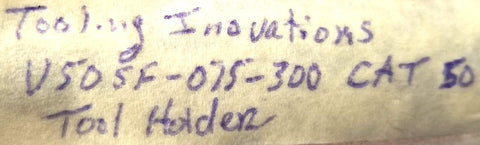 Tooling Inovations
V50SF-075-300 CAT 50
Tool Holder